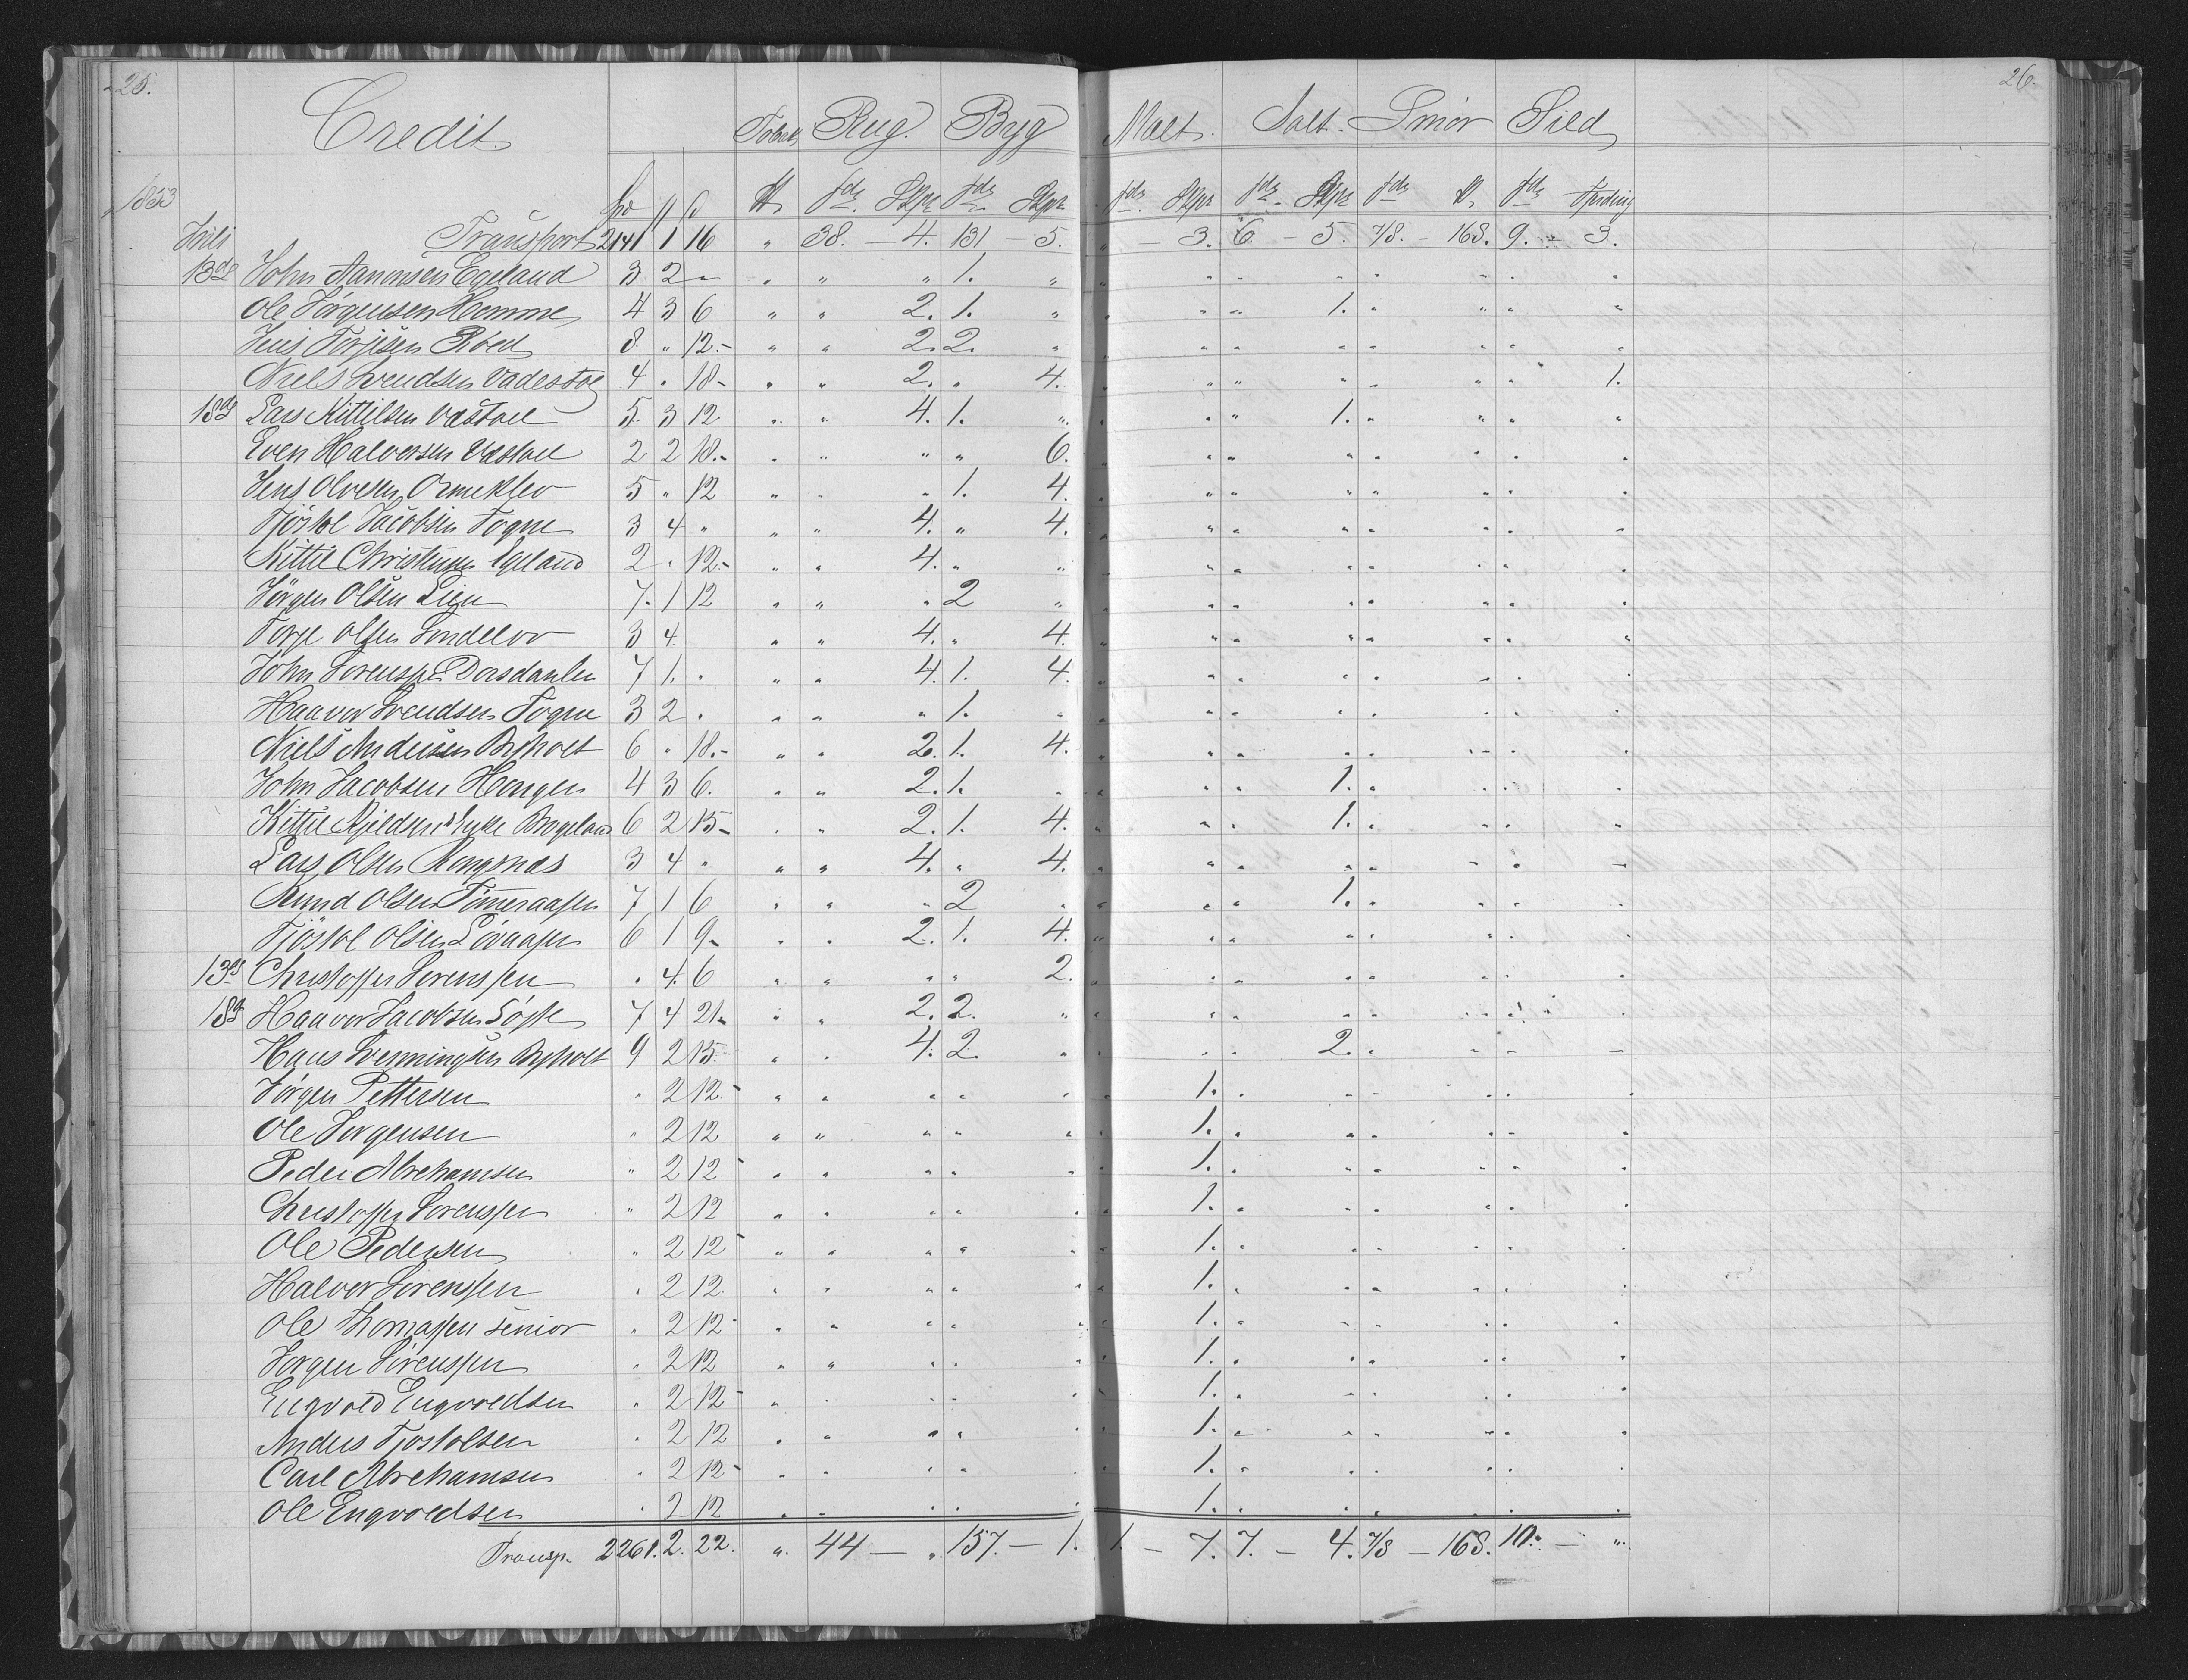 25. 26.
Credit Tobak Rug. Byg Malt. Salt. Smör Sild
1853
Juli Transport 2141 1 16 " 38. – 4. 131 – 5. " – 3. 6. – 5. 7/8. – 168. 9. – 3.
13de John Aanonsen Egeland 3 2 " " " " 1. " " " " " " " " "
Ole Jörgensen Homme 4 3 6 " " 2. 1. " " " " 1. " " " "
Jens Torjesen 8 " 12. " " 2. 2. " " " " " " " " "
Niels Svendsen 4 " 18 " " 2. " 4. " " " " " " " 1.
18de Lars Kittilsen 5 3 12 " " 4. 1. " " " " 1. " " " "
Even Halvorsen 2 2 18. " " " " 6. " " " " " " " "
Jens Olvesen 5 " 12 " " " 1. 4. " " " " " " " "
Tjöstol Jacobsen Fogne 3 4 " " " 4. " 4. " " " " " " " "
Kittil Christensen Egeland 2 " 12. " " 4. " " " " " " " " " "
Jörgen Olsen Lien 7 1 12 " " " 2 " " " " " " " " "
Torje Olsen 3 4 " " 4. " 4. " " " " " " " "
John Sörenssen 7 1. " " " 4. 1. 4. " " " " " " " "
Haavor Svendsen Fogne 3 2 " " " " 1. " " " " " " " " "
Niels Andersen 6 " 18. " " 2. 1. 4. " " " " " " " "
John Jacobsen 4 3 6. " " 2. 1. " " " " 1. " " " "
Kittil 6 2 15 " " 2. 1. 4. " " " 1. " " " "
Lars Olsen 3 4 " " " 4. " 4. " " " " " " " "
Olsen 7 1 6 " " " 2 " " " " 1. " " " "
Tjöstol Olsen 6 1 9 " " 2. 1. 4. " " " " " " " "
13de Christoffer Sörenssen " 4. 6 " " " " 2. " " " " " " " "
18de Haavor Jacobsen 7 4 21 " " 2. 2. " " " " " " " " "
Hans 9 2 15. " " 4. 2. " " " " 2. " " " "
Jörgen Pettersen " 2 12. " " " " " " 1. " " " " " "
Ole Jörgensen " 2 12 " " " " " " 1. " " " " " "
Peder Abrehamsen " 2 12 " " " " " " 1. " " " " " "
Christoffer Sörenssen " 2 12 " " " " " " 1. " " " " " "
Ole Pedersen " 2 12 " " " " " " 1. " " " " " "
Halvor Sörenssen " 2 12. " " " " " " 1. " " " " " "
Ole Thomassen senior " 2 12 " " " " " " 1. " " " " " "
Jörgen Sörenssen " 2 12 " " " " " " 1. " " " " " "
Engvold Engvoldsen " 2 12 " " " " " " 1. " " " " " "
Anders Tjostolsen " 2 12 " " " " " " 1. " " " " " "
Carl Abrehamsen " 2 12 " " " " " " 1. " " " " " "
Ole Engvoldsen " 2 12 " " " " " " 1. " " " " " "
Transp. 2261. 2. 22. " 44 – " 157. – 1. 1 – 7. 7. – 4. 7/8 – 168. 10. – "